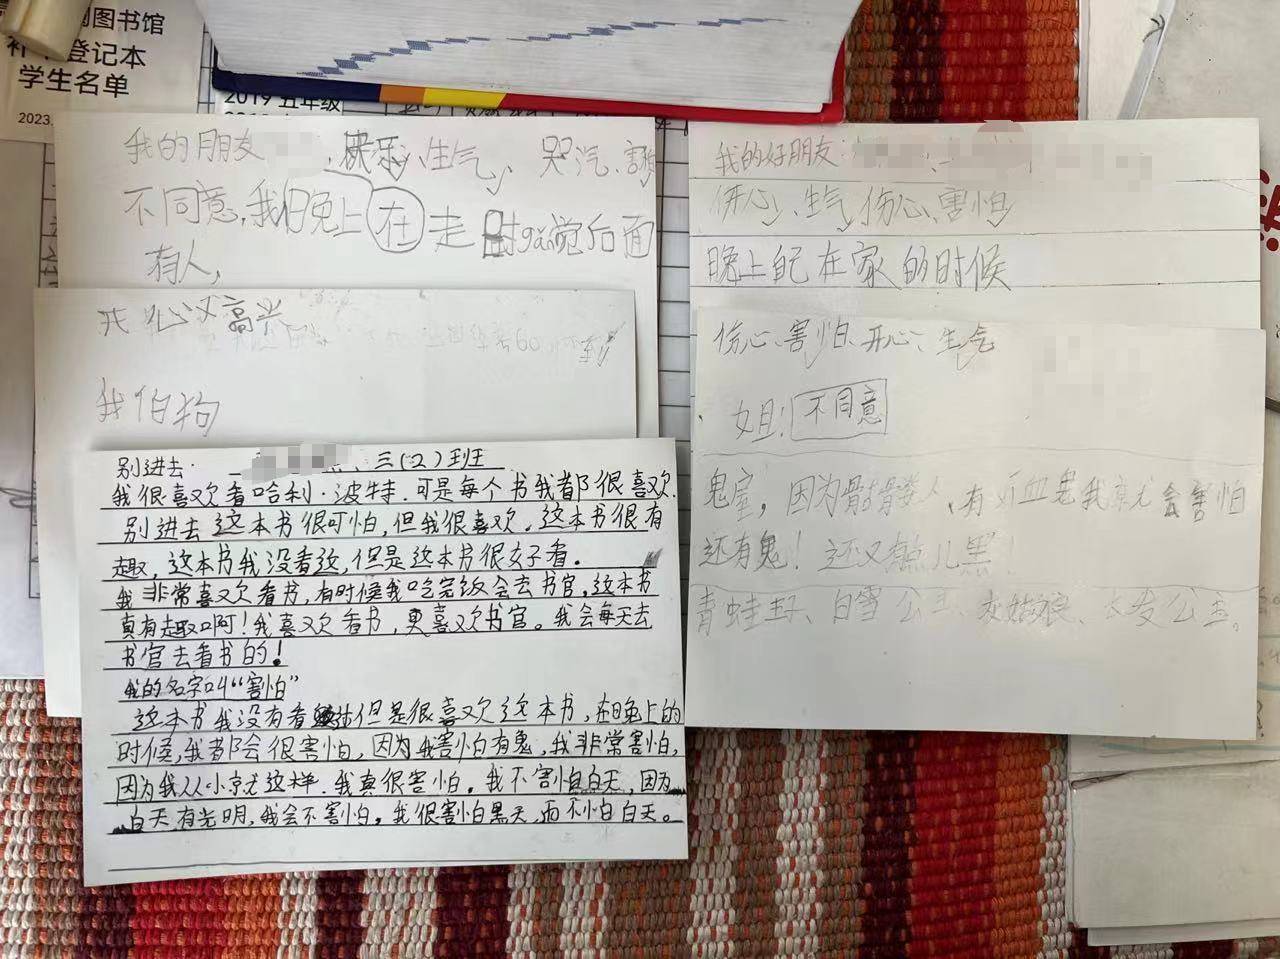 图书馆
登记本
学生名单
2023.
2019 五年级
我的朋友 快乐、生气、哭
不同意,我旧晚上在走时gǎn觉后面
有人,
我心又高兴
我怕狗
别进去 三(2)班
我很喜欢看哈利·波特.可是每个书我都很喜欢.
别进去这本书很可怕,但我很喜欢.这本书很有
趣,这本书我没看这,但是这本书很好看.
我非常喜欢看书,有时候我吃完饭会去书官,这本书
真有趣啊!我喜欢看书,更喜欢书官。我会每天去
书官去看书的!
我的名字叫“害怕”
这本书我没有看 但是很喜欢这本书,在晚上的
时候,我都会很害怕,因为我害怕有鬼,我非常害怕,
因为我从小就这样.我真很害怕。我不害怕白天,因为
白天有光明,我会不害怕。我很害怕黑天,而不怕白天。
我的好朋友:
生气 伤心、害怕
晚上自己在家的时候
伤心、害怕、开心、生气
姐:不同意
鬼屋,因为骷髅人、有 血鬼我就会害怕
还有鬼!还又 点儿黑!
青蛙王、白雪公主、灰姑娘、长发公主。